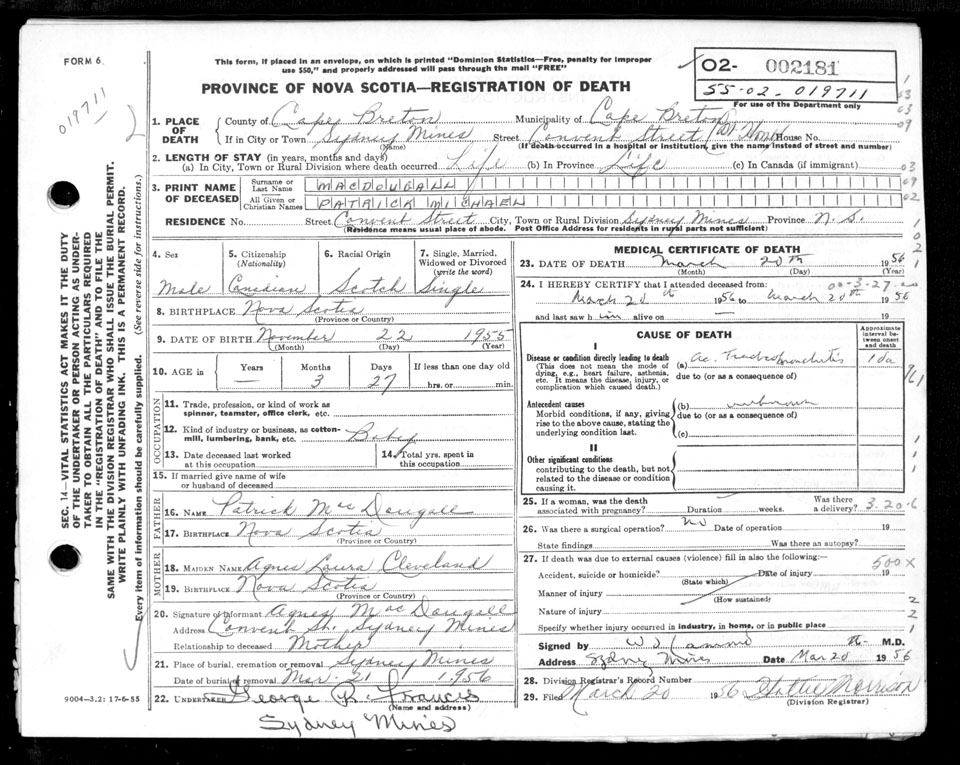 FORM 6.
This form, if placed in an envelope, on which is printed "Dominion Statistics—Free, penalty for improper
use $50," and properly addressed will pass through the mail "FREE"
02- 002181
55-02-019711
For use of the Department only
019711
PROVINCE OF NOVA SCOTIA—REGISTRATION OF DEATH
1. PLACE OF DEATH
County of Cape Breton Municipality of Cape Breton
If in City or Town Sydney Mines Street Convent Street (At Home) House No.
(Name) (If death occurred in a hospital or institution, give the name instead of street and number)
2. LENGTH OF STAY (in years, months and days)
(a) In City, Town or Rural Division where death occurred Life (b) In Province Life (c) In Canada (if immigrant)
3. PRINT NAME OF DECEASED
Surname or Last Name MACDOUGALL
All Given or Christian Names PATRICK MICHAEL
RESIDENCE No. Street Convent Street City, Town or Rural Division Sydney Mines Province N. S.
(Residence means usual place of abode. Post Office Address for residents in rural parts not sufficient)
4. Sex
Male
5. Citizenship (Nationality)
Canadian
6. Racial Origin
Scotch
7. Single, Married, Widowed or Divorced (write the word)
Single
8. BIRTHPLACE Nova Scotia
(Province or Country)
9. DATE OF BIRTH November 22 1955
(Month) (Day) (Year)
10. AGE in
Years —
Months 3
Days 27
If less than one day old
hrs. or min.
OCCUPATION
11. Trade, profession, or kind of work as
spinner, teamster, office clerk, etc.
12. Kind of industry or business, as cotton-
mill, lumbering, bank, etc. Baby
13. Date deceased last worked
at this occupation
14. Total yrs. spent in
this occupation
15. If married give name of wife
or husband of deceased
FATHER
16. NAME Patrick Mac Dougall
17. BIRTHPLACE Nova Scotia
(Province or Country)
MOTHER
18. MAIDEN NAME Agnes Laura Cleveland
19. BIRTHPLACE Nova Scotia
(Province or Country)
20. Signature of informant Agnes Mac Dougall
Address Convent St. Sydney Mines
Relationship to deceased Mother
21. Place of burial, cremation or removal Sydney Mines
Date of burial or removal Mar. 21 1956
22. UNDERTAKER George R. Francis
(Name and address)
Sydney Mines
MEDICAL CERTIFICATE OF DEATH
23. DATE OF DEATH March 20th 1956
(Month) (Day) (Year)
24. I HEREBY CERTIFY that I attended deceased from:
00-3-27
March 20th 1956 to March 20th 1956
and last saw him alive on — 19
CAUSE OF DEATH
Approximate interval between onset and death
I
Disease or condition directly leading to death
(This does not mean the mode of
dying, e.g., heart failure, asthenia,
etc. It means the disease, injury, or
complication which caused death.)
(a) Ac. Tracheobronchitis 1 da
due to (or as a consequence of)
Antecedent causes
Morbid conditions, if any, giving
rise to the above cause, stating the
underlying condition last.
(b) unknown
due to (or as a consequence of)
(c)
II
Other significant conditions
contributing to the death, but not
related to the disease or condition
causing it.
25. If a woman, was the death
associated with pregnancy? Duration weeks. Was there a delivery?
3.20.6
26. Was there a surgical operation? no Date of operation 19
State findings Was there an autopsy?
27. If death was due to external causes (violence) fill in also the following:—
500X
Accident, suicide or homicide? Date of injury 19
(State which)
Manner of injury
(How sustained)
Nature of injury
Specify whether injury occurred in industry, in home, or in public place
Signed by M.D.
Address Sydney Mines Date Mar 20 1956
28. Division Registrar's Record Number
29. Filed March 20 1956 Hattie Morrison
(Division Registrar)
SEC. 14—VITAL STATISTICS ACT MAKES IT THE DUTY
OF THE UNDERTAKER OR PERSON ACTING AS UNDER-
TAKER TO OBTAIN ALL THE PARTICULARS REQUIRED
IN THE "REGISTRATION OF DEATH" AND TO FILE THE
SAME WITH THE DIVISION REGISTRAR WHO SHALL ISSUE THE BURIAL PERMIT.
WRITE PLAINLY WITH UNFADING INK. THIS IS A PERMANENT RECORD.
Every item of information should be carefully supplied. (See reverse side for instructions.)
9004—3.2: 17-6-55